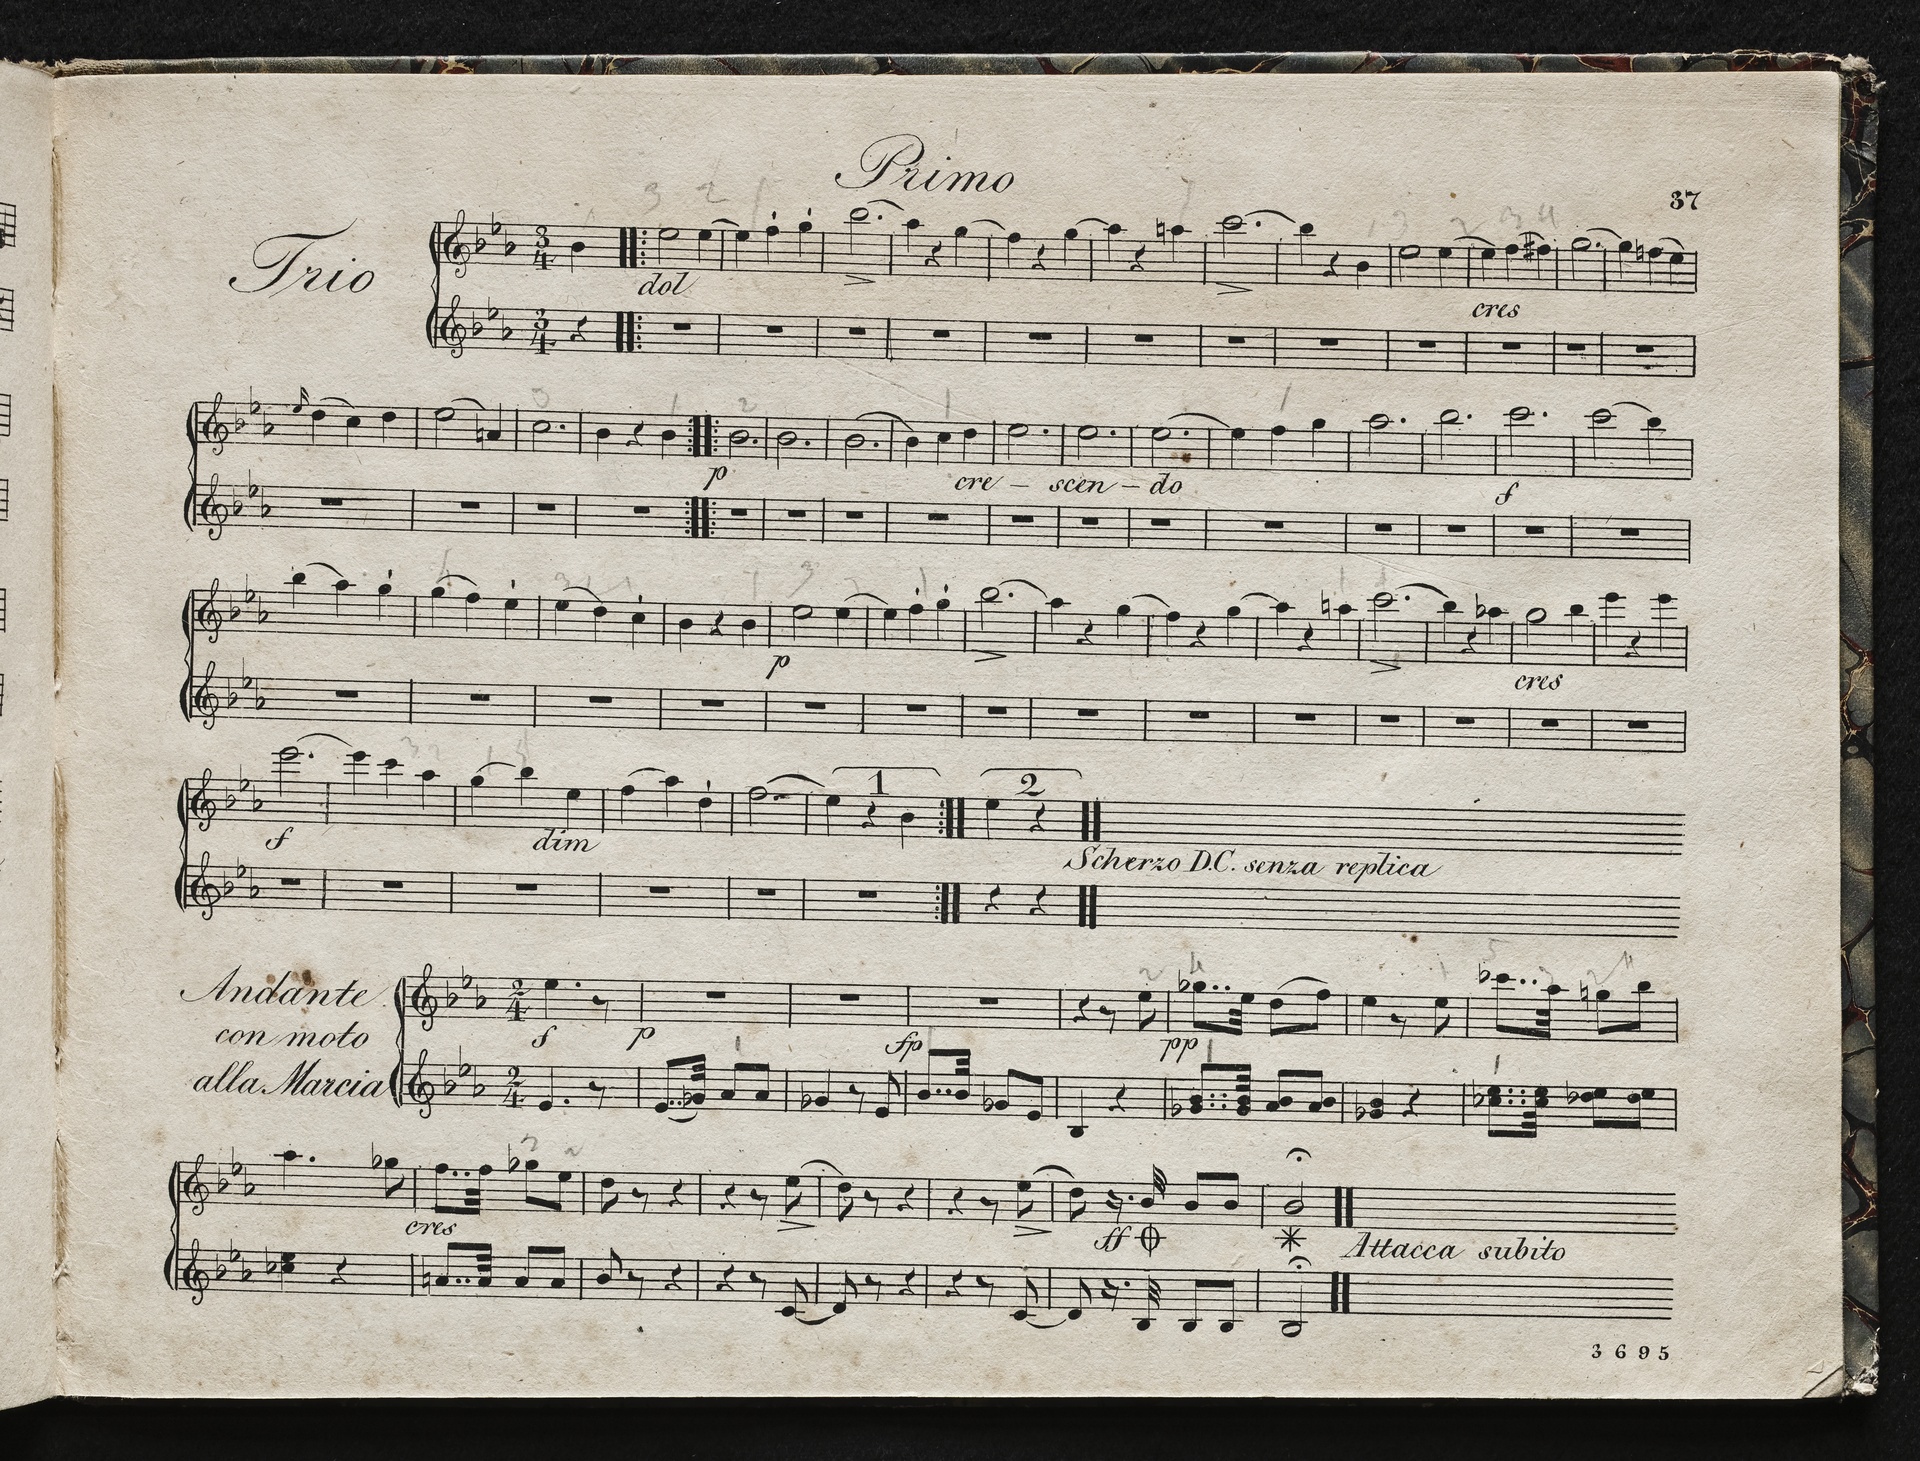 Primo
37
Trio
3 4
dol
cres
3 4
p
cre - scen - do
f
p
cres
1
2
f
dim
Scherzo D.C. senza replica
Andante
con moto
alla Marcia
2 4
f
p
fp
pp
2 4
cres
ff
Attacca subito
3695